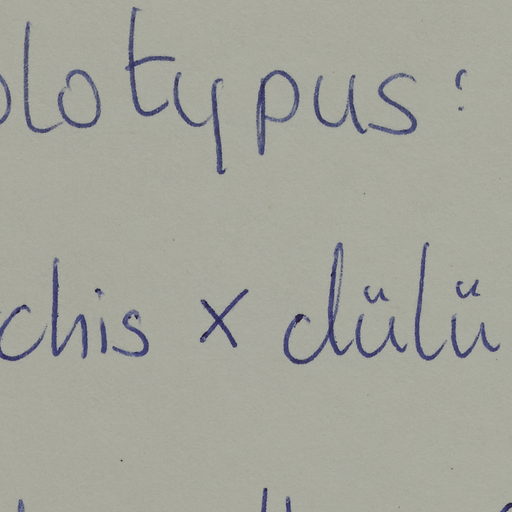 olotypus:
chis × dülü